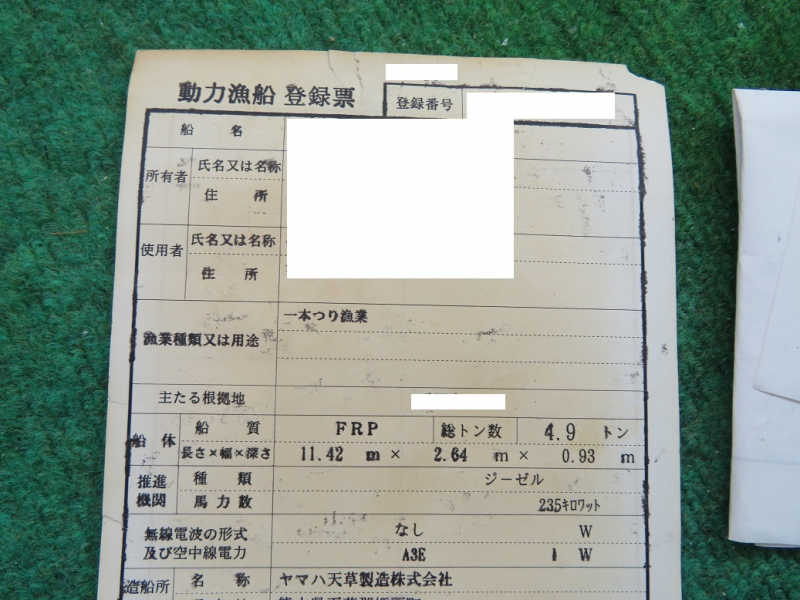 動力漁船 登録票
登録番号
船 名
所有者
氏名又は名称
住 所
使用者
氏名又は名称
住 所
漁業種類又は用途
一本つり漁業
主たる根拠地
船 体
船 質
FRP
総トン数
4.9 トン
長さ×幅×深さ
11.42 m × 2.64 m × 0.93 m
推進機関
種 類
ジーゼル
馬力数
235キロワット
無線電波の形式
なし W
及び空中線電力
A3E 1 W
造船所
名 称
ヤマハ天草製造株式会社